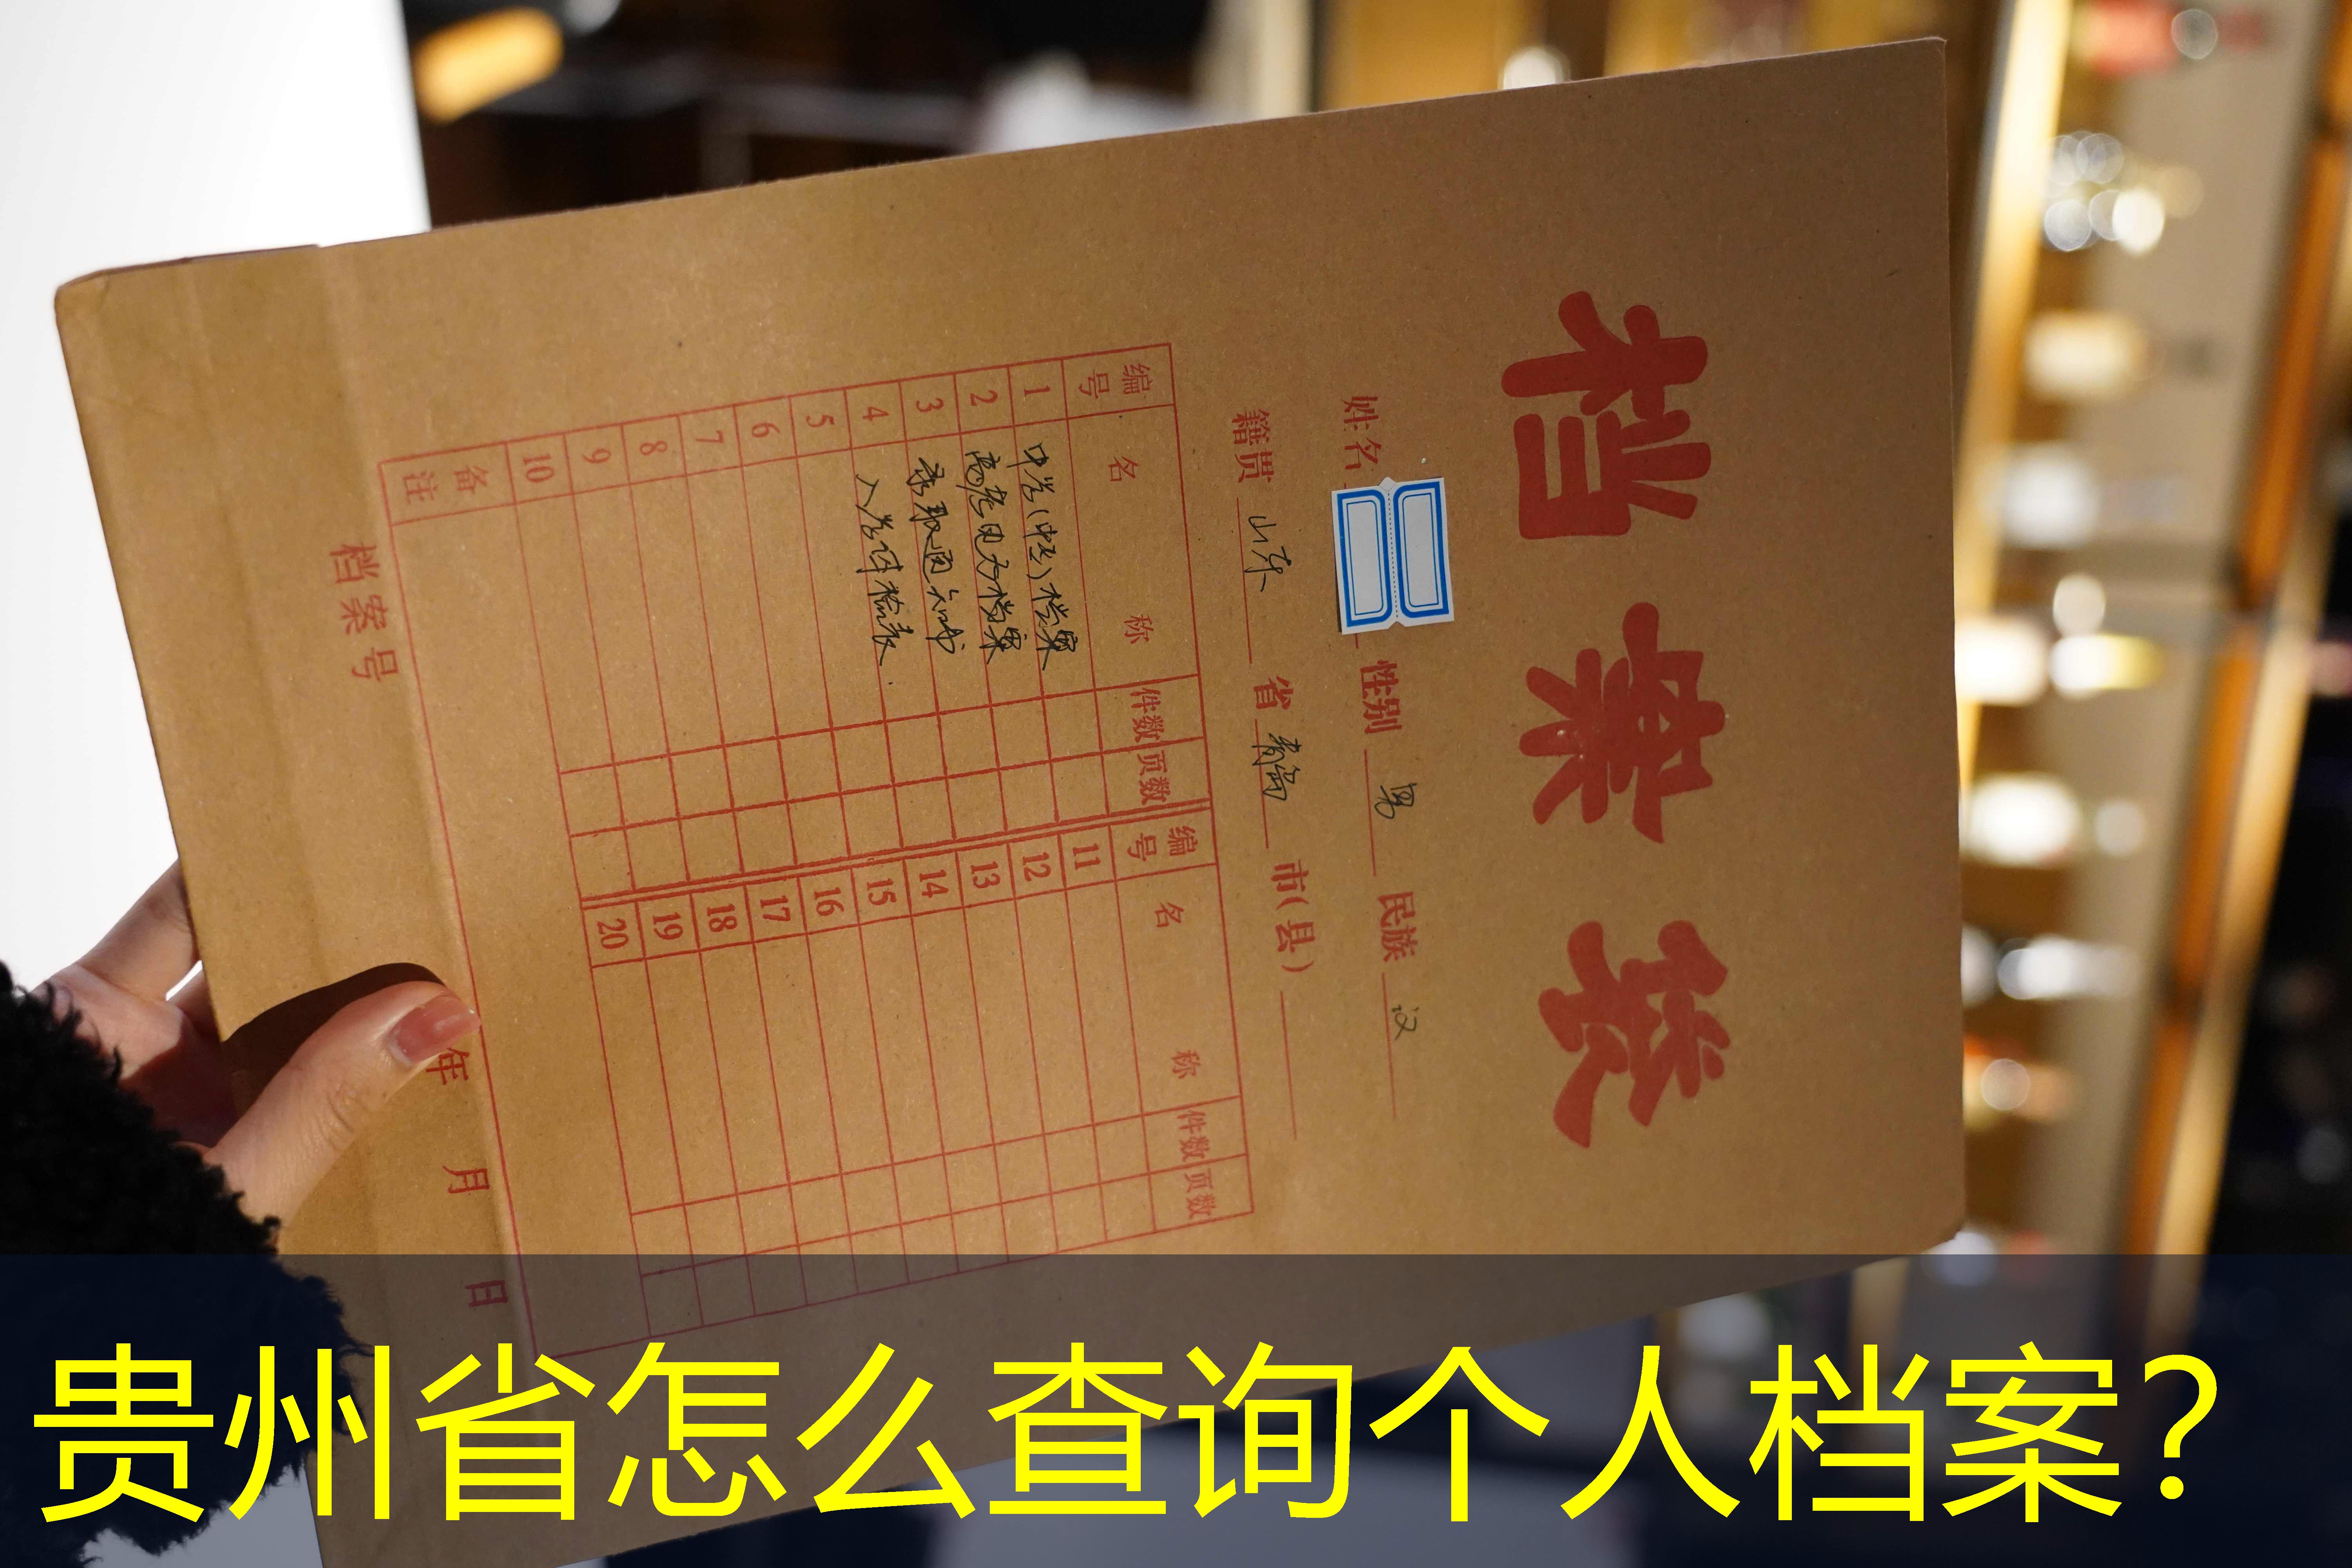 档案袋
姓名 性别 男 民族 汉
籍贯 山东 省 青岛 市(县)
编号 名称 件数 页数 编号 名称 件数 页数
1 中学(中专)档案 11
2 高考电子档案 12
3 录取通知书 13
4 入学体检表 14
5 15
6 16
7 17
8 18
9 19
10 20
备注
档案号 年 月 日
贵州省怎么查询个人档案?